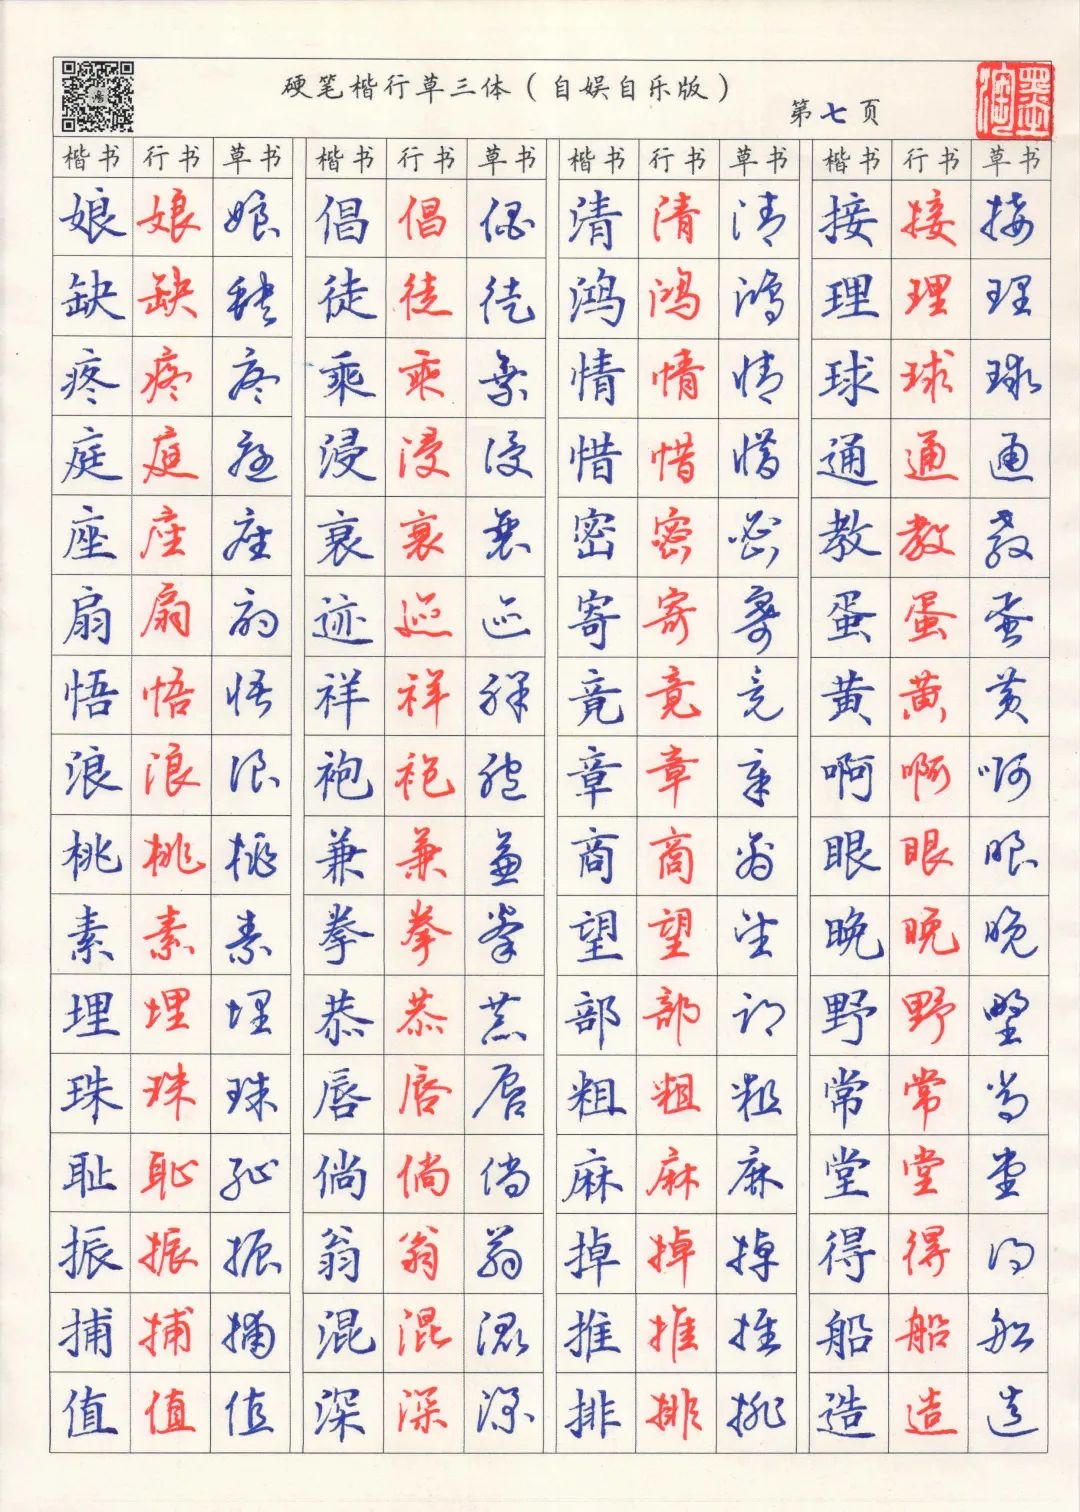 硬笔楷行草三体（自娱自乐版）
第七页
楷书 行书 草书 楷书 行书 草书 楷书 行书 草书 楷书 行书 草书
娘 娘 娘 倡 倡 倡 清 清 清 接 接 接
缺 缺 缺 徒 徒 徒 鸿 鸿 鸿 理 理 理
疼 疼 疼 乘 乘 乘 情 情 情 球 球 球
庭 庭 庭 浸 浸 浸 惜 惜 惜 通 通 通
座 座 座 衰 衰 衰 密 密 密 教 教 教
扇 扇 扇 迹 迹 迹 寄 寄 寄 蛋 蛋 蛋
悟 悟 悟 祥 祥 祥 竟 竟 竟 黄 黄 黄
浪 浪 浪 袍 袍 袍 章 章 章 啊 啊 啊
桃 桃 桃 兼 兼 兼 商 商 商 眼 眼 眼
素 素 素 拳 拳 拳 望 望 望 晚 晚 晚
埋 埋 埋 恭 恭 恭 部 部 部 野 野 野
珠 珠 珠 唇 唇 唇 粗 粗 粗 常 常 常
耻 耻 耻 倘 倘 倘 麻 麻 麻 堂 堂 堂
振 振 振 翁 翁 翁 掉 掉 掉 得 得 得
捕 捕 捕 混 混 混 推 推 推 船 船 船
值 值 值 深 深 深 排 排 排 造 造 造